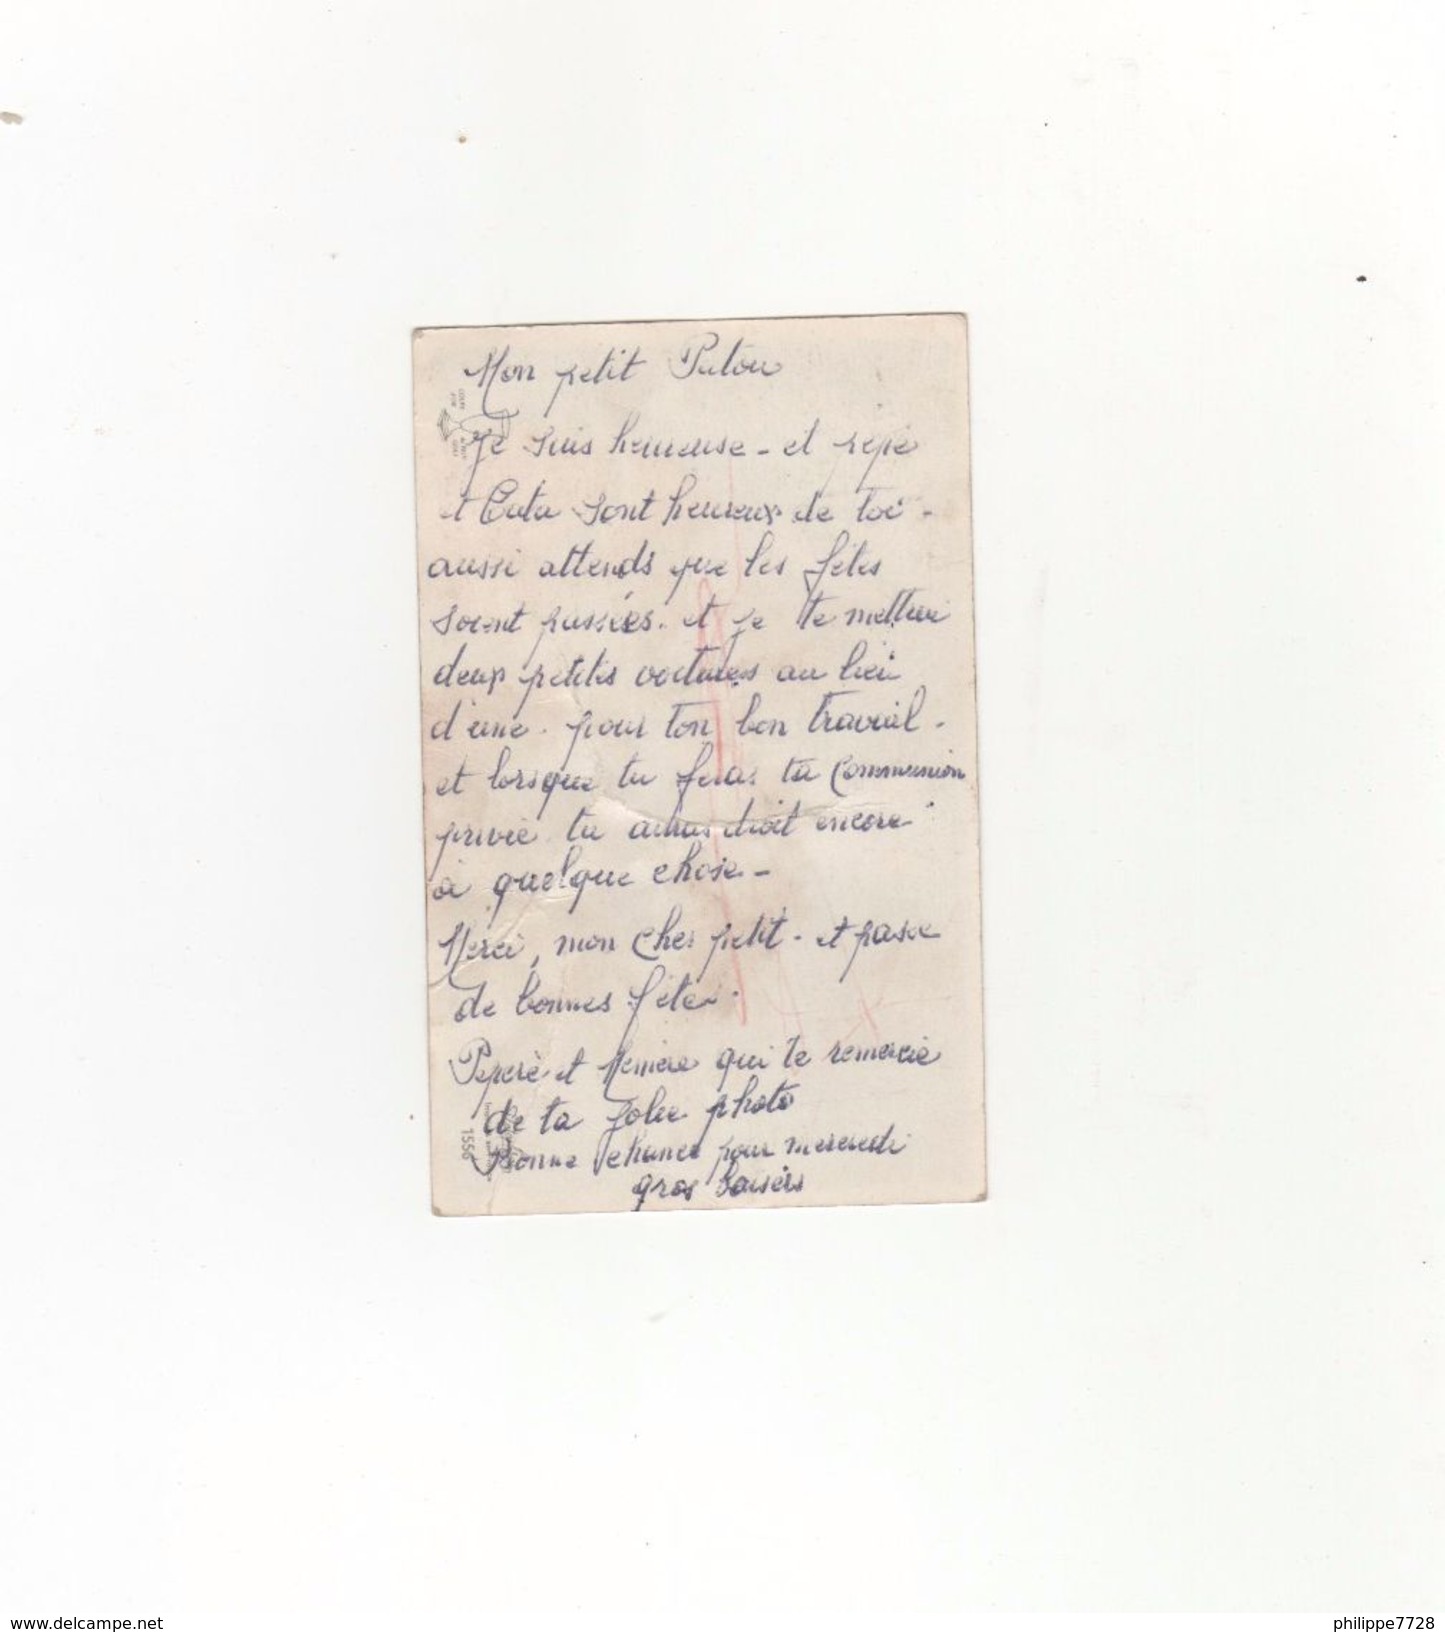 Mon petit Patou
Je suis heureuse - et pépé
et Cata sont heureux de toi -
aussi attends que les fêtes
soient passées. et je te mettrai
deux petites voitures au lieu
d'une. pour ton bon travail -
et lorsque tu feras ta Communion
privée tu auras droit encore
à quelque chose -
Merci, mon cher petit - et passe
de bonnes fêtes.
Pépère et Mémère qui te remercie
de ta jolie photo
Bonne chance pour mercredi
gros baisers
1556
www.delcampe.net
philippe7728